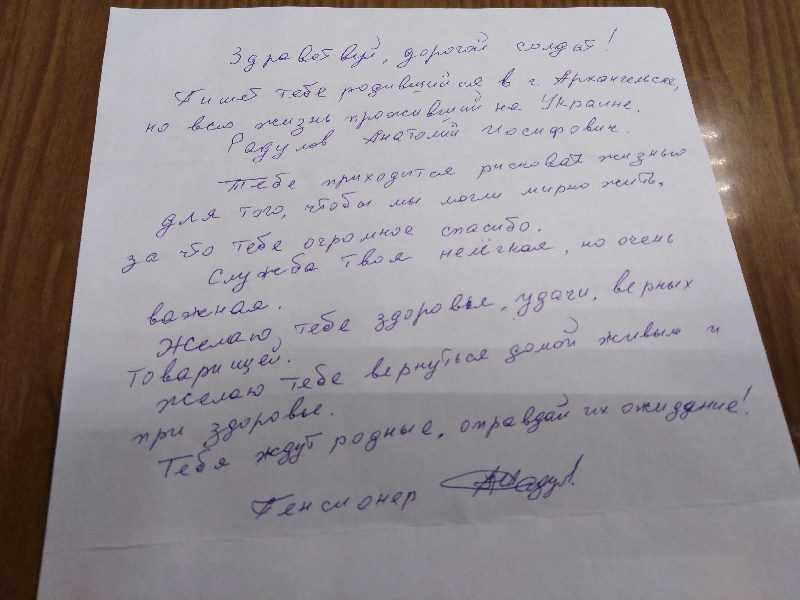 Здравствуй, дорогой солдат!
Пишет тебе родившийся в г. Архангельске,
но всю жизнь проживший на Украине.
Радулов Анатолий Иосифович.
Тебе приходится рисковать жизнью
для того, чтобы мы могли мирно жить,
за что тебе огромное спасибо.
Служба твоя нелёгкая, но очень
важная.
Желаю тебе здоровья, удачи, верных
товарищей.
Желаю тебе вернуться домой живым и
при здоровье.
Тебя ждут родные, оправдай их ожидание!
Пенсионер